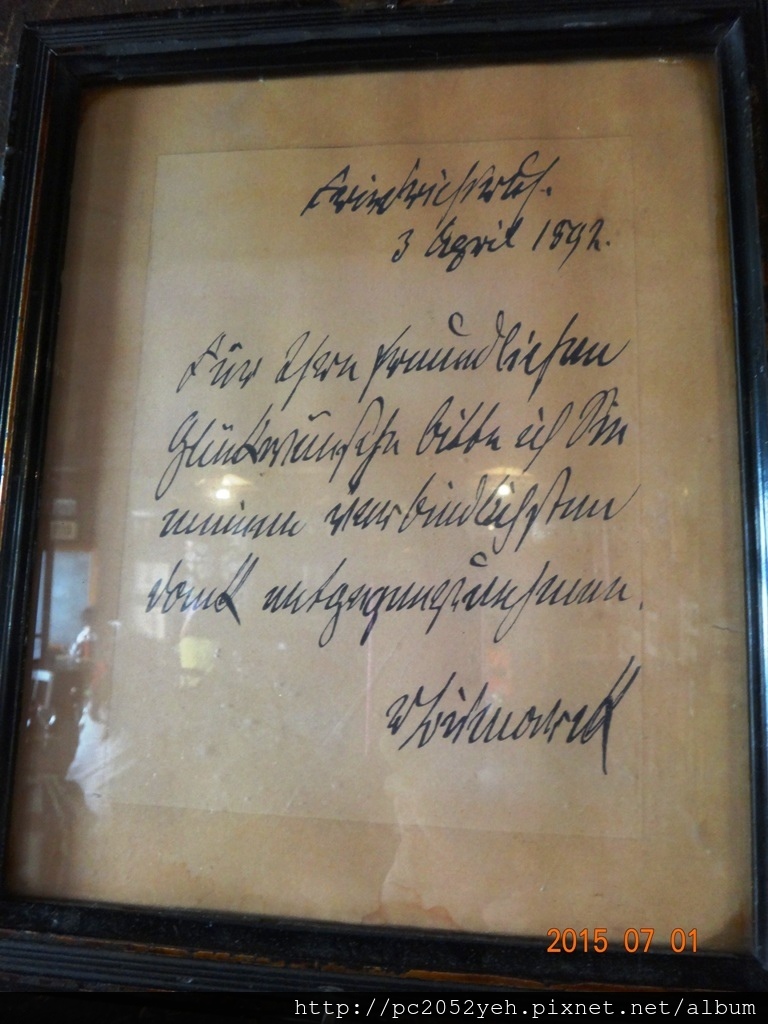 Friedrichsruh.
3 April 1892.
Für Ihre freundlichen
Glückwünsche bitte ich Sie
meinen verbindlichsten
Dank entgegenzunehmen.
v Bismarck
2015 07 01
http://pc2052yeh.pixnet.net/album